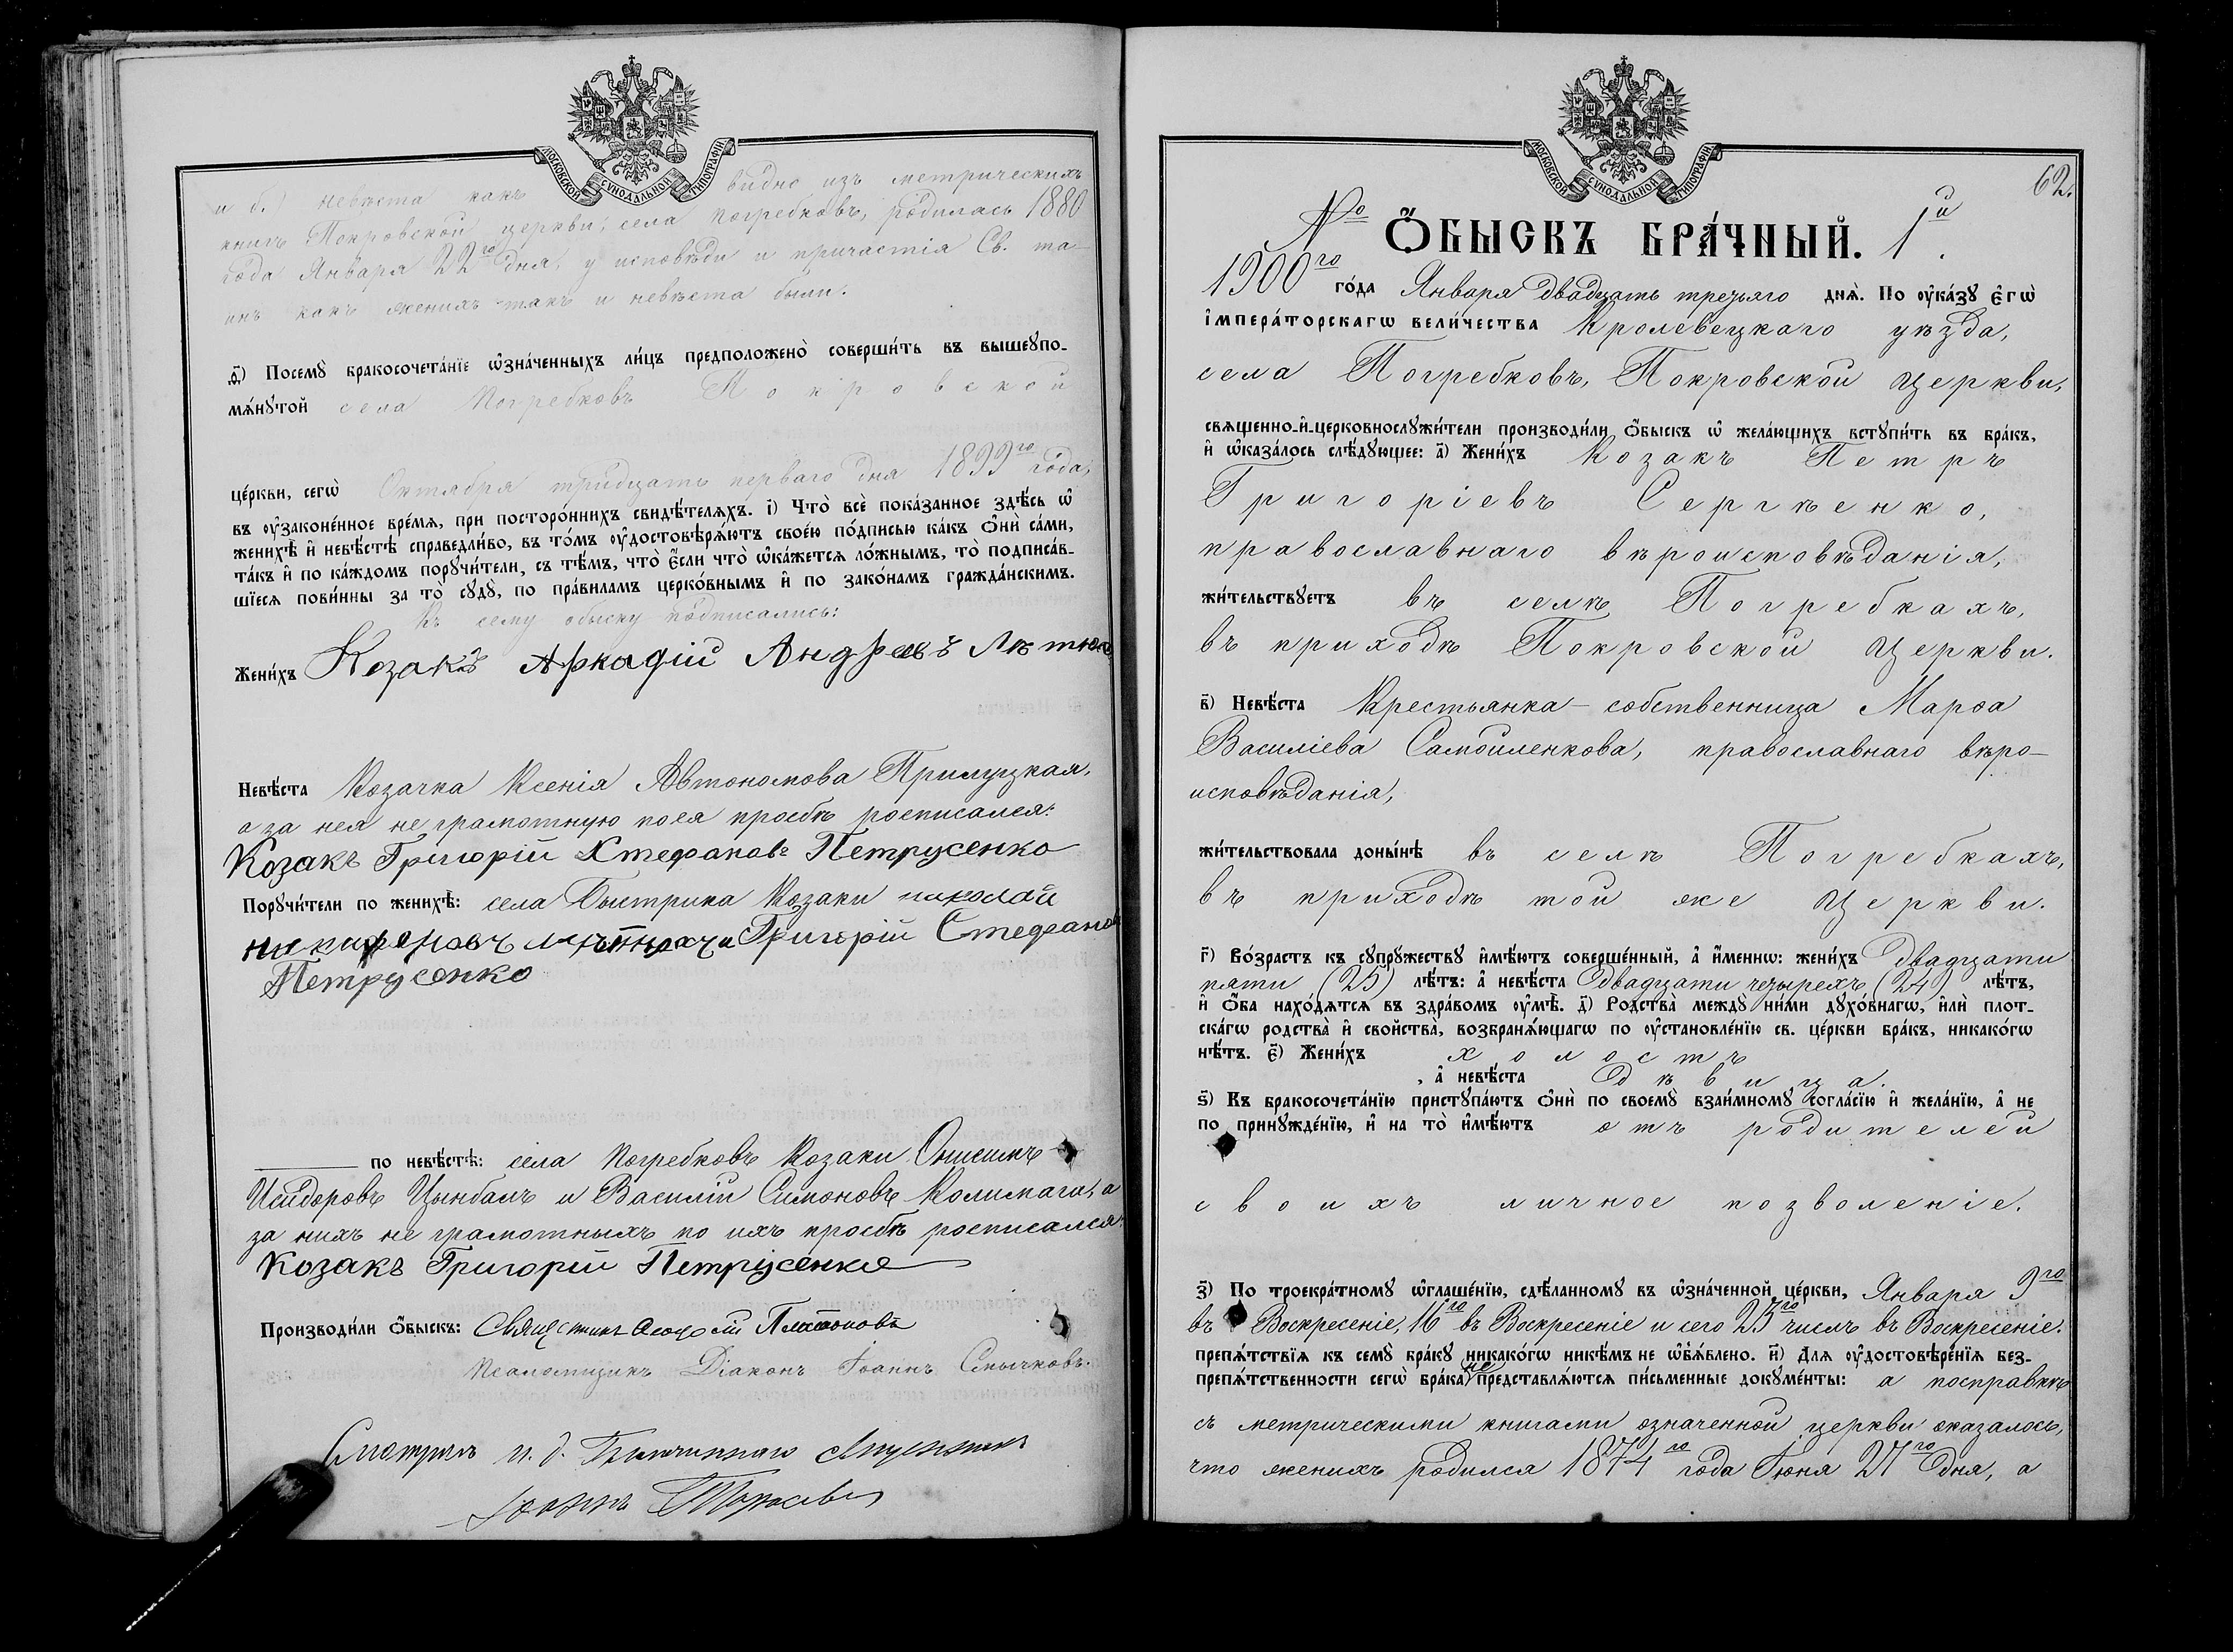 МОСКОВСКОЙ СѴНОДАЛЬНОЙ ТИПОГРАФІИ
невѣста какъ видно изъ метрическихъ
книгъ Покровской церкви, села Погребковъ, родилась 1880
года Января 22го дня, у исповѣди и причастія Св. та-
инъ какъ женихъ такъ и невѣста были.
ѳ҃) Посемꙋ̀ бракосочета́нїе ѡ҆зна́ченныхъ ли́цъ предположено̀ соверши́ть въ вышеꙋпо-
мѧ́нꙋтой села Погребковъ Покровской
це́ркви, сегѡ̀ Октября тридцать перваго дня 1899го года,
въ ᲂу҆законе́нное вре́мѧ, при посторо́ннихъ свидѣ́телѧхъ. і҃) Что̀ всѐ пока́занное здѣ́сь ѡ҆
женихѣ̀ и҆ невѣ́стѣ справедли́во, въ то́мъ ᲂу҆достовѣрѧ́ютъ свое́ю по́дписью ка́къ ѻ҆нѝ са́ми,
та́къ и҆ по ка́ждомъ порꙋчи́тели, съ тѣ́мъ, что̀ є҆́сли что̀ ѡ҆ка́жетсѧ ло́жнымъ, то̀ подписа́в-
шїесѧ пови́нны за то̀ сꙋдꙋ̀, по пра́виламъ церко́внымъ и҆ по зако́намъ гражда́нскимъ.
Къ сему обыску подписались:
Жени́хъ Козакъ Аркадій Андреевъ
Невѣ́ста Козачка Ксенія Автономова Прилуцкая,
а за нея не грамотную по ея просьбѣ росписался:
Козакъ Григорій Стефановъ Петрусенко
Порꙋчи́тели по женихѣ̀: села Быстрика Козаки николай
никифоровъ и Григорій Стефановъ
Петрусенко
по невѣ́стѣ: села Погребковъ Козаки Онисимъ
Исидоровъ Цынбалъ и Василій Симоновъ Колимага, а
за нихъ не грамотныхъ по ихъ просьбѣ росписался:
Козакъ Григорій Петрусенко
Производи́ли ѻ҆́быскъ: Священникъ Ѳеодосій Платоновъ
Псаломщикъ Діаконъ Іоаннъ Смычковъ.
Смотрѣлъ и. д. Благочиннаго Священникъ
Іоаннъ
МОСКОВСКОЙ СѴНОДАЛЬНОЙ ТИПОГРАФІИ
62.
№ Ѻ҆́БЫСКЪ БРА́ЧНЫЙ. 1й.
1900го го́да Января двадцать третьяго днѧ̀. По ᲂу҆ка́зꙋ є҆гѡ̀
і҆мпера́торскагѡ вели́чества Кролевецкаго уѣзда,
села Погребковъ, Покровской церкви,
свѧщенно-и҆-церковнослꙋжи́тели производи́ли ѻ҆́быскъ ѡ҆ жела́ющихъ встꙋпи́ть въ бра́къ,
и҆ ѡ҆каза́лось слѣ́дꙋющее: а҃) Жени́хъ Козакъ Петръ
Григоріевъ Сергѣенко,
православнаго вѣроисповѣданія,
жи́тельствꙋетъ въ селѣ Погребкахъ,
въ приходѣ Покровской церкви.
в҃) Невѣ́ста Крестьянка-собственница Марѳа
Василіева Самойленкова, православнаго вѣро-
исповѣданія,
жи́тельствовала доны́нѣ въ селѣ Погребкахъ,
въ приходѣ той же церкви.
г҃) Во́зрастъ къ сꙋпрꙋ́жествꙋ и҆мѣ́ютъ соверше́нный, а҆ и҆́менно: жени́хъ двадцати
пяти (25) лѣ́тъ: а҆ невѣ́ста двадцати четырехъ (24) лѣ́тъ,
и҆ ѻ҆́ба нахо́дѧтсѧ въ здра́вомъ ᲂу҆мѣ̀. д҃) Родства̀ междꙋ̀ ни́ми дꙋхо́внагѡ, и҆лѝ плот-
ска́гѡ родства̀ и҆ свойства̀, возбранѧ́ющагѡ по ᲂу҆становле́нїю св. це́ркви бра́къ, никако́гѡ
нѣ́тъ. є҃) Жени́хъ холостъ
, а҆ невѣ́ста дѣвица.
ѕ҃) Къ бракосочета́нїю пристꙋпа́ютъ ѻ҆нѝ по своемꙋ̀ взаи́мномꙋ согла́сїю и҆ жела́нїю, а҆ не
по принꙋжде́нїю, и҆ на то̀ и҆мѣ́ютъ отъ родителей
своихъ личное позволеніе.
з҃) По троекра́тномꙋ ѡ҆глаше́нїю, сдѣ́ланномꙋ въ ѡ҆зна́ченной це́ркви, Января 9го
въ Воскресеніе, 16го въ Воскресеніе и сего 23го числъ въ Воскресеніе.
препѧ́тствїѧ къ семꙋ̀ бра́кꙋ никако́гѡ никѣ́мъ не ѡ҆б̾ѧ́влено. и҃) Длѧ ᲂу҆достовѣре́нїѧ без-
препѧ́тственности сегѡ̀ бра́ка не представлѧ́ютсѧ пи́сьменные докꙋме́нты: а посправкѣ
съ метрическими книгами означенной церкви оказалось,
что женихъ родился 1874го года Іюня 27го дня, а